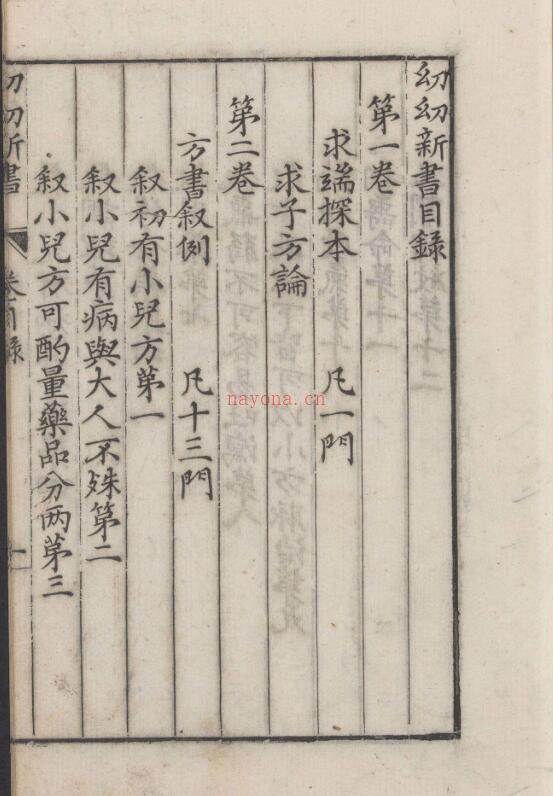 幼幼新書目錄
第一卷
求端探本 凡一門
求子方論
第二卷
方書叙例 凡十三門
叙初有小兒方第一
叙小兒有病與大人不殊第二
叙小兒方可酌量藥品分两第三
幼幼新書 卷目錄 一
nayona.cn